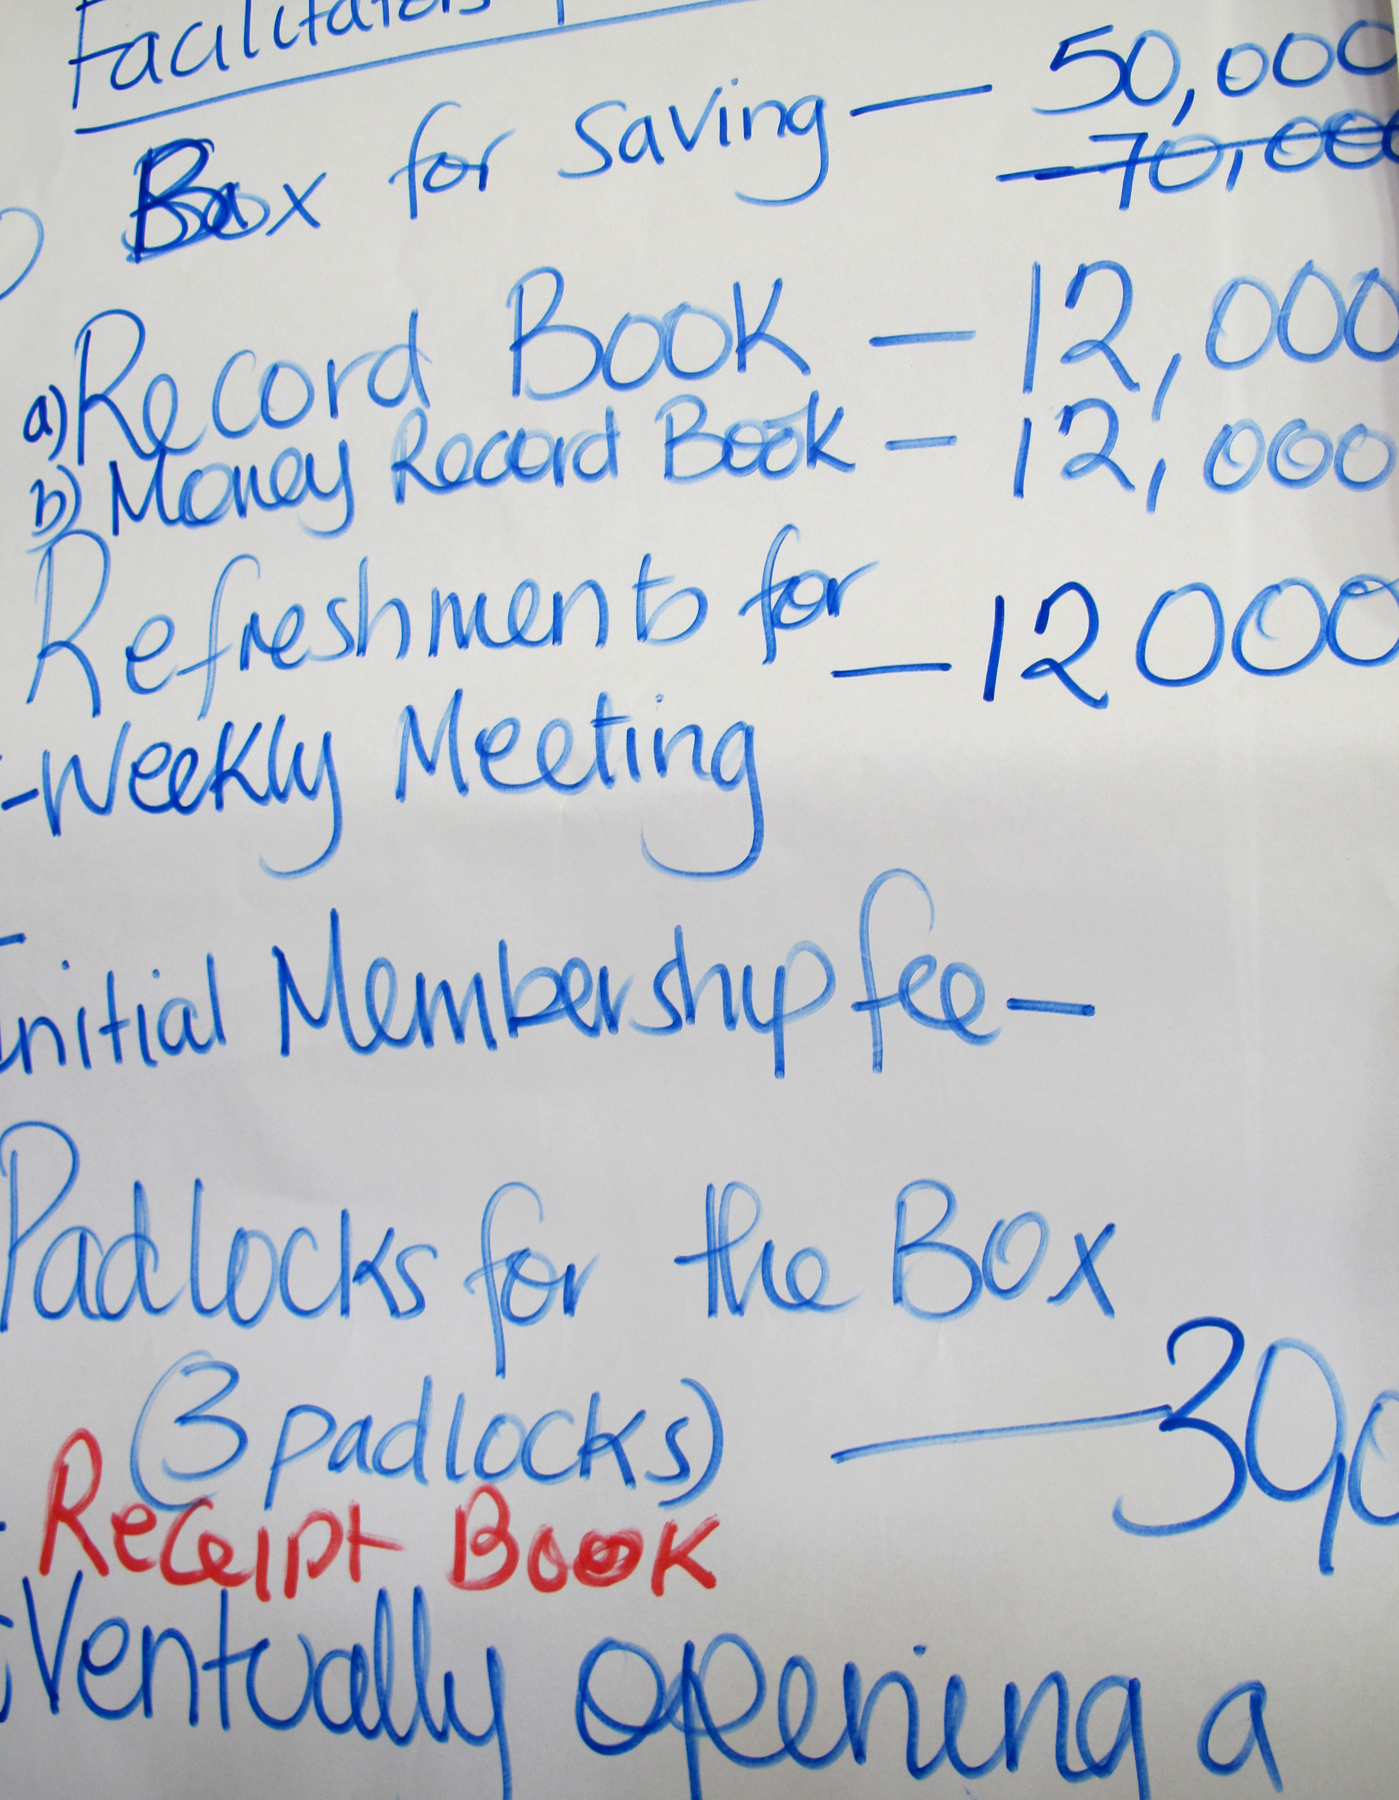 Facilitators
Box for Saving — 50,000
—70,000
a) Record Book — 12,000
b) Money Record Book — 12,000
Refreshments for — 12000
-Weekly Meeting
Initial Membership fee —
Padlocks for the Box
(3 padlocks) — 30,0
Receipt Book
Eventually opening a